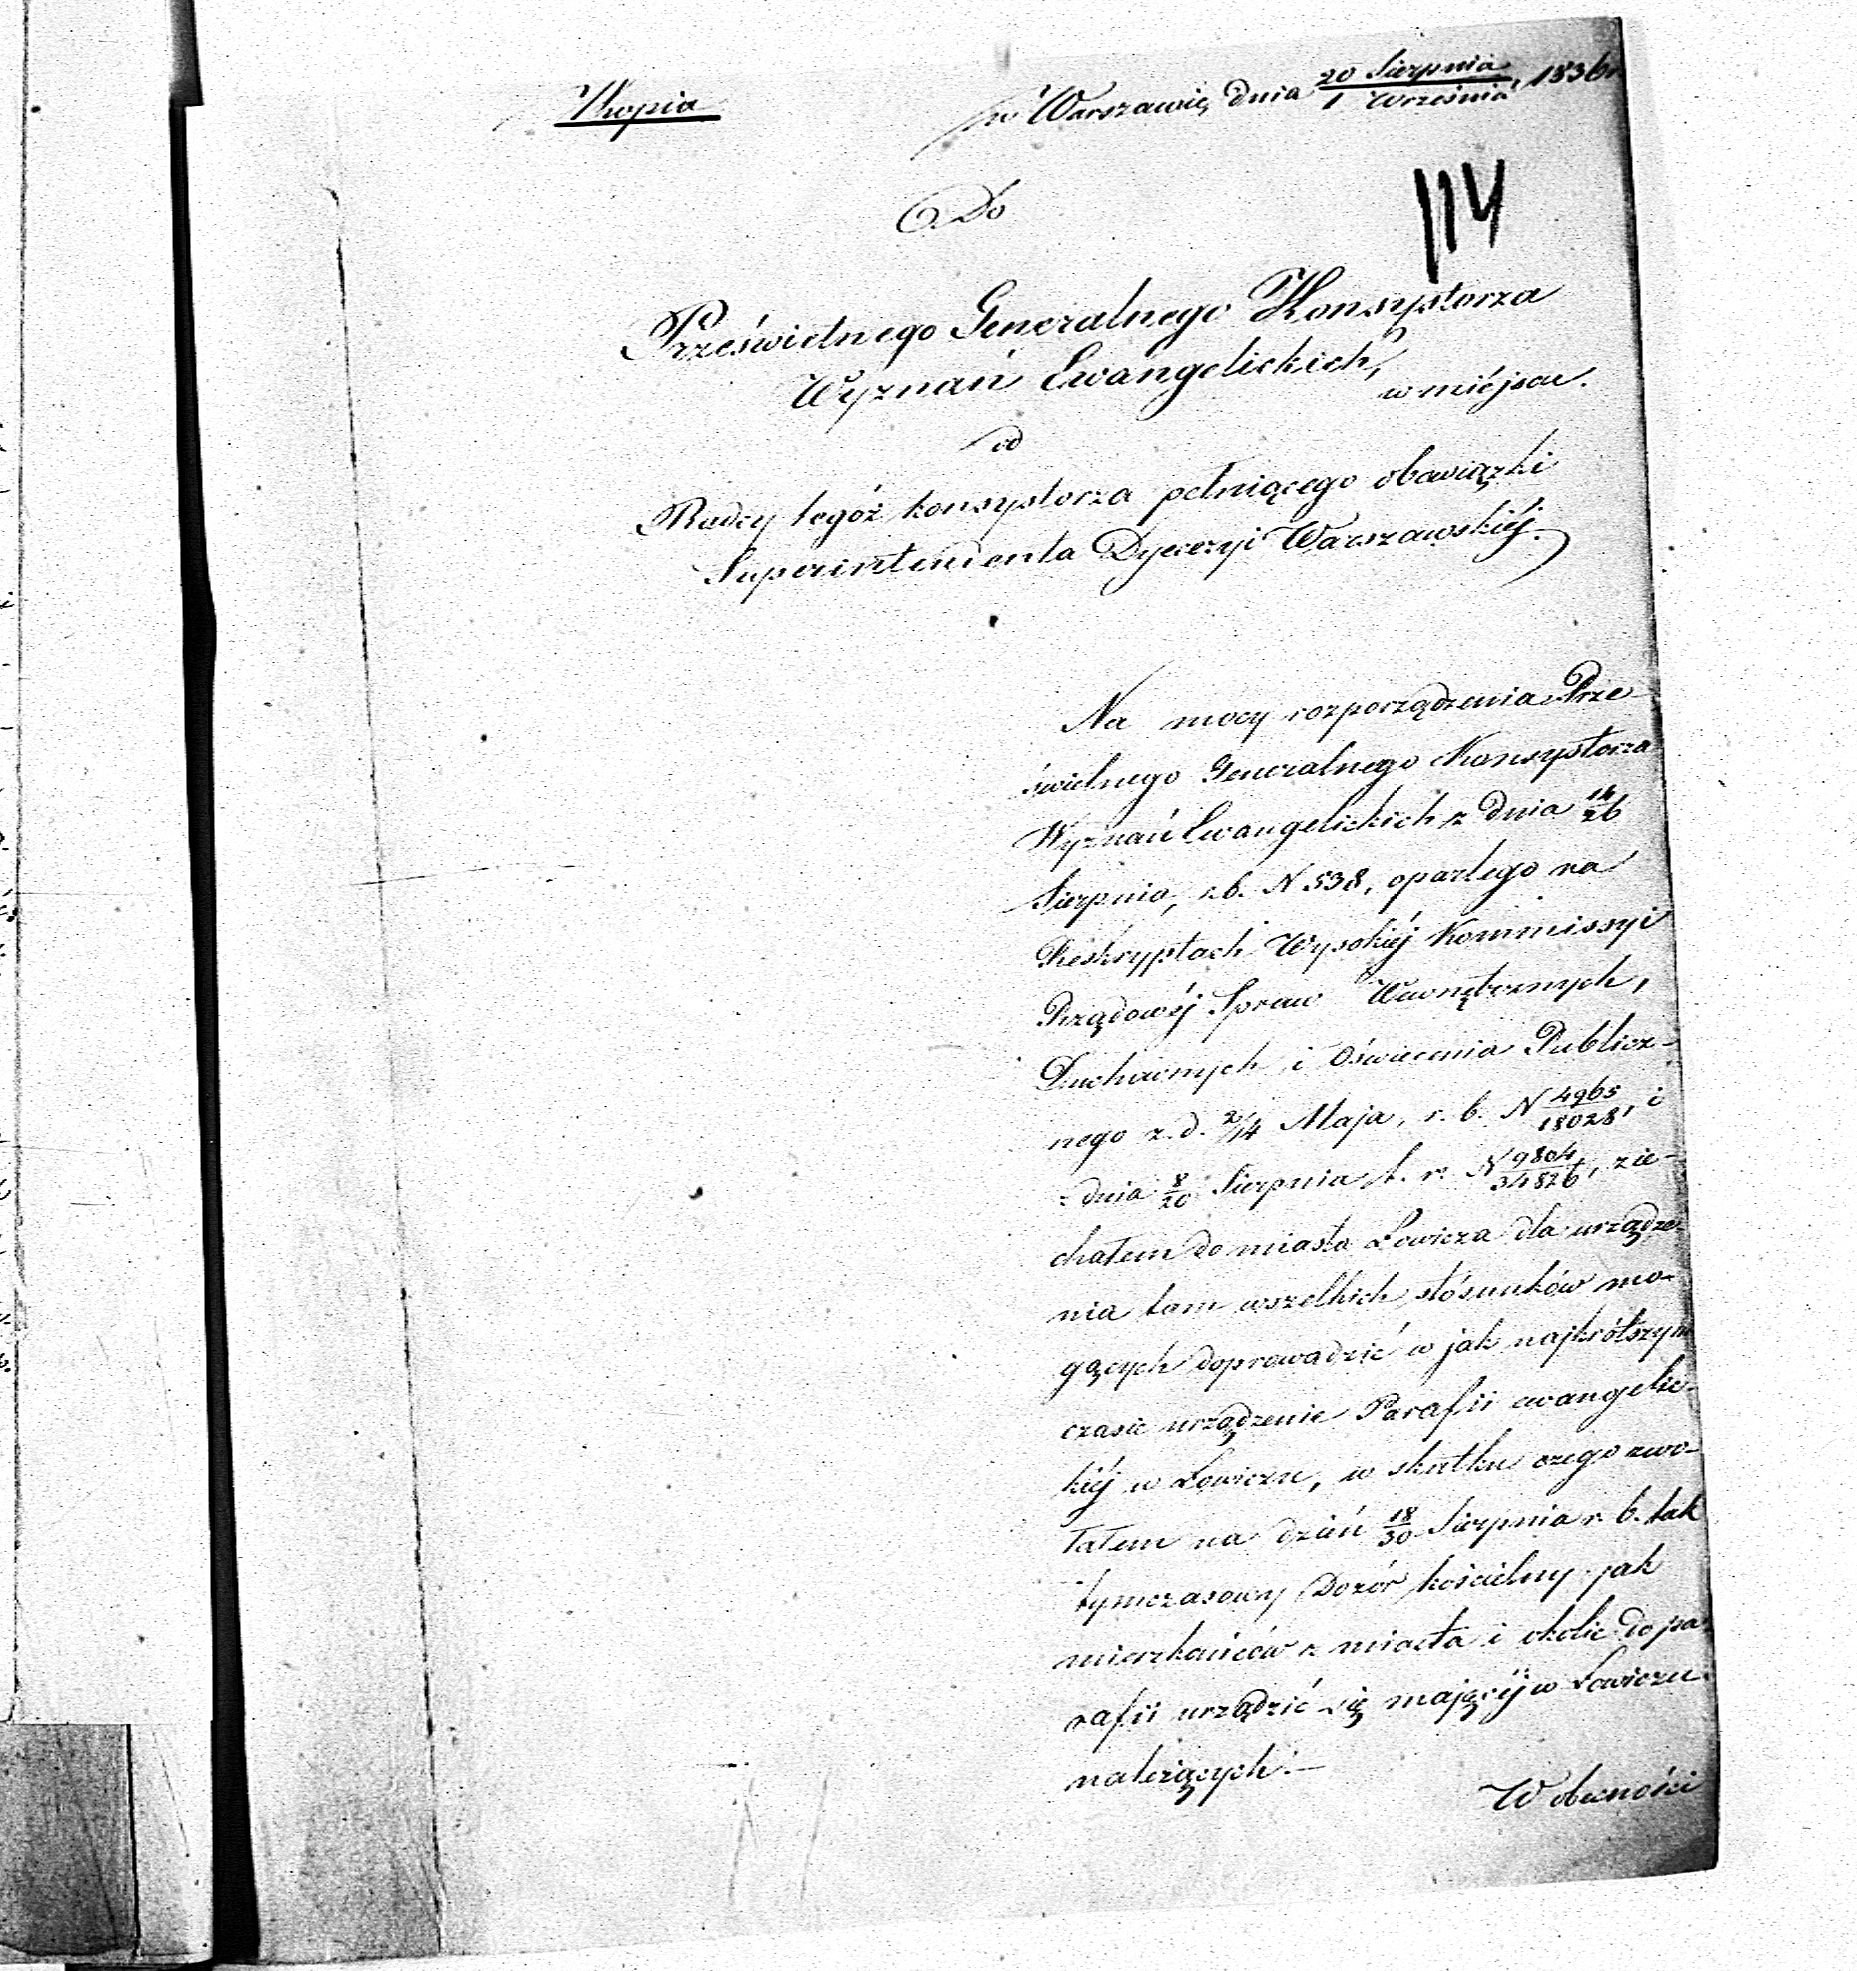 Kopia
w Warszawie, dnia 20 Sierpnia / 1 Września, 1836 r
114
Do
Prześwietnego Generalnego Konsystorza
Wyznań Ewangelickich,
w miéjscu.
od
Radcy tegóż konsystorza pełniącego obowiązki
Superintendenta Dyecezyi Warszawskiéj.
Na mocy rozporządzenia Prze
świetnego Generalnego Konsystorza
Wyznań Ewangelickich z dnia 14/26
Sierpnia, r.b. N 538, opartego na
Reskryptach Wysokiéj Kommissyi
Rządowéj Spraw Wewnętrznych,
Duchownych i Oświecenia Publicz-
nego z. d. 2/14 Maja, r. b. N 4965/18028, i
z dnia 8/20 Sierpnia t. r. N 9804/34826, zie-
chałem do miasta Łowicza dla urządze-
nia tam wszelkich stósunków mo-
gących doprowadzić w jak najkrótszym
czasie urządzenie Parafii ewangelic-
kiéj w Łowiczu, w skutku czego zwo-
łałem na dzień 18/30 Sierpnia r. b. tak
tymczasowy Dozór kościelny jak
mieszkańców z miasta i okolic do pa-
rafii urządzić się mającéj w Łowiczu
należących.—
W obecności